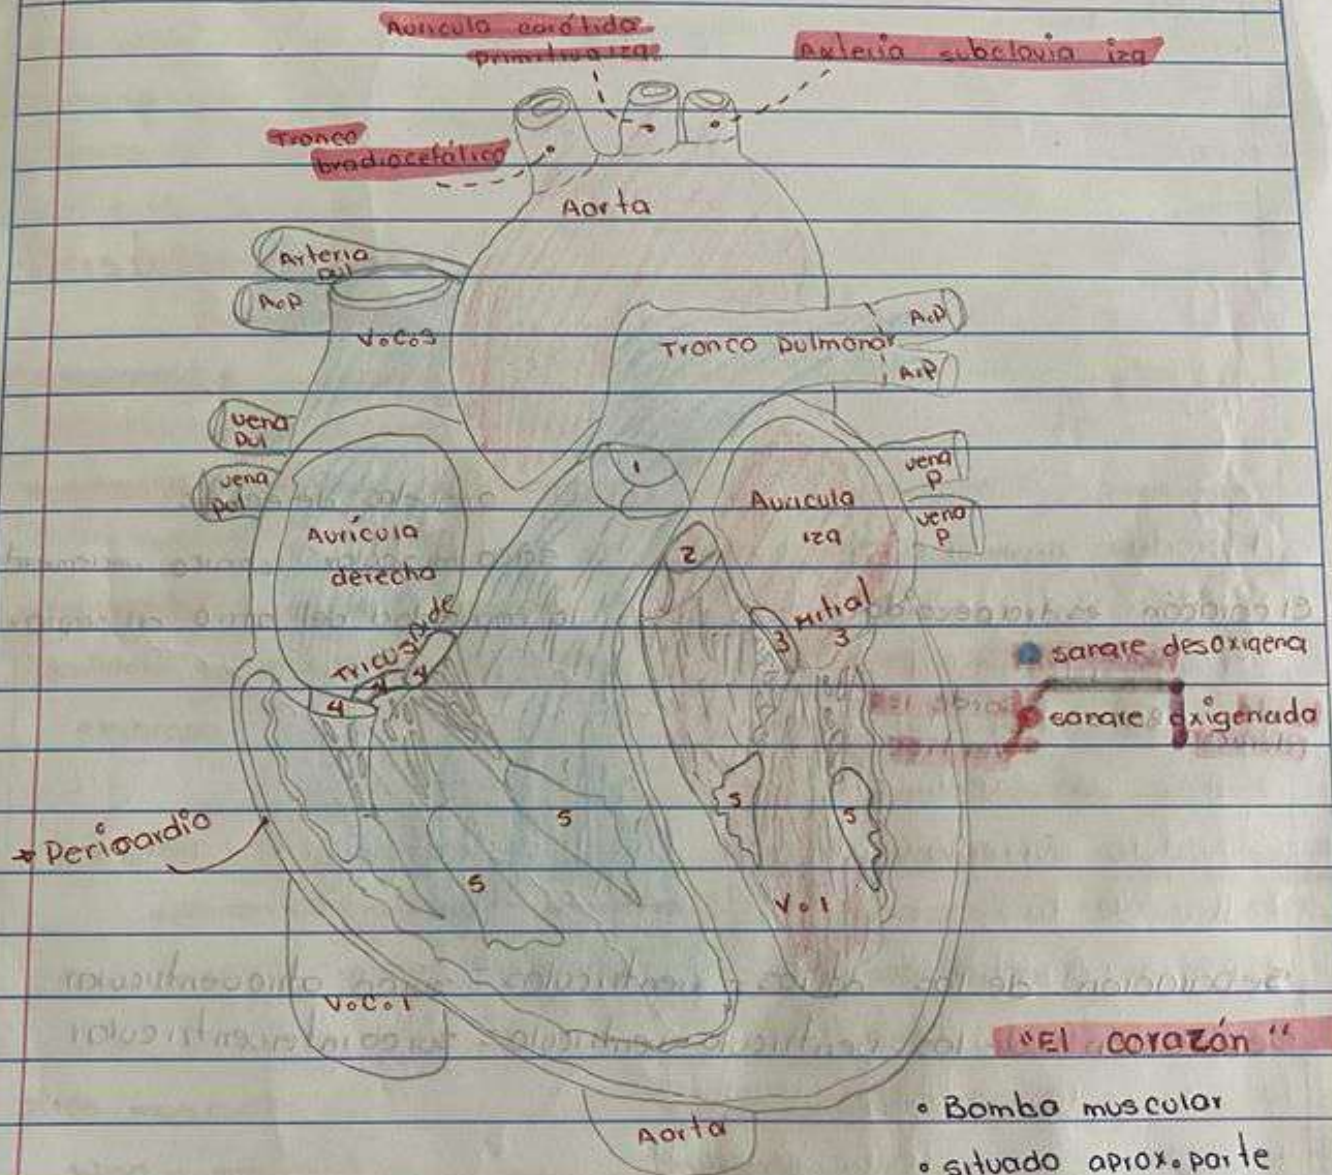 Auricula carótida
primitiva izq
Arteria subclavia izq
Tronco
bradiocefálico
Aorta
Arteria
pul
A.P
V.C.S
Tronco pulmonar
A.P
A.P
vena
pul
vena
pul
1
Auricula
izq
vena
P
vena
P
Aurícula
derecha
2
Tricuspide
Mitral
3
3
4
4
4
sangre desoxigena
sangre oxigenada
Pericardio
5
5
5
5
V.I
V.C.I
Aorta
"El corazón"
• Bomba muscular
• situado aprox. parte